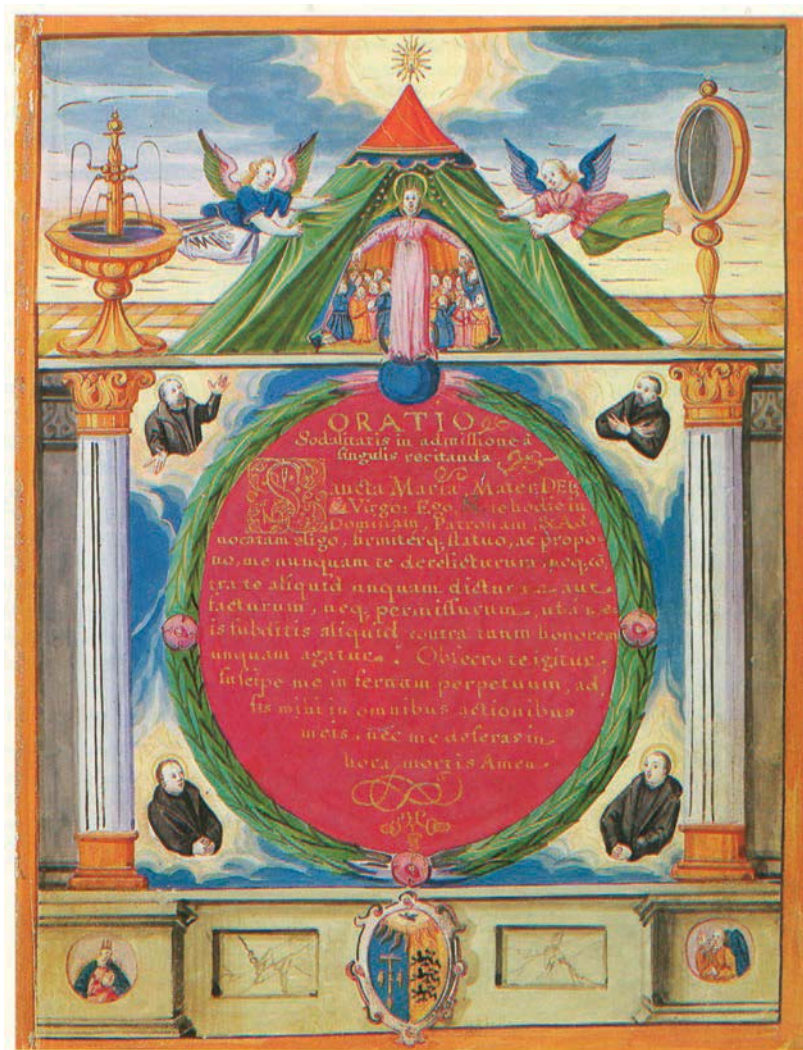 ORATIO
Sodalitatis in admissione à
singulis recitanda
Sancta Maria Mater DEI
& Virgo: Ego hodie in
Dominam, Patronam, & Ad
vocatam eligo, firmiterq; statuo, ac propo
no, me nunquam te derelicturum, neq; cō
tra te aliquid unquam dicturum aut
facturum, neq; permissurum, ut à me
is subditis aliquid contra tuum honorem
unquam agatur. Obsecro te igitur,
suscipe me in servum perpetuum, ad
sis mihi in omnibus actionibus
meis, nec me deseras in
hora mortis Amen.